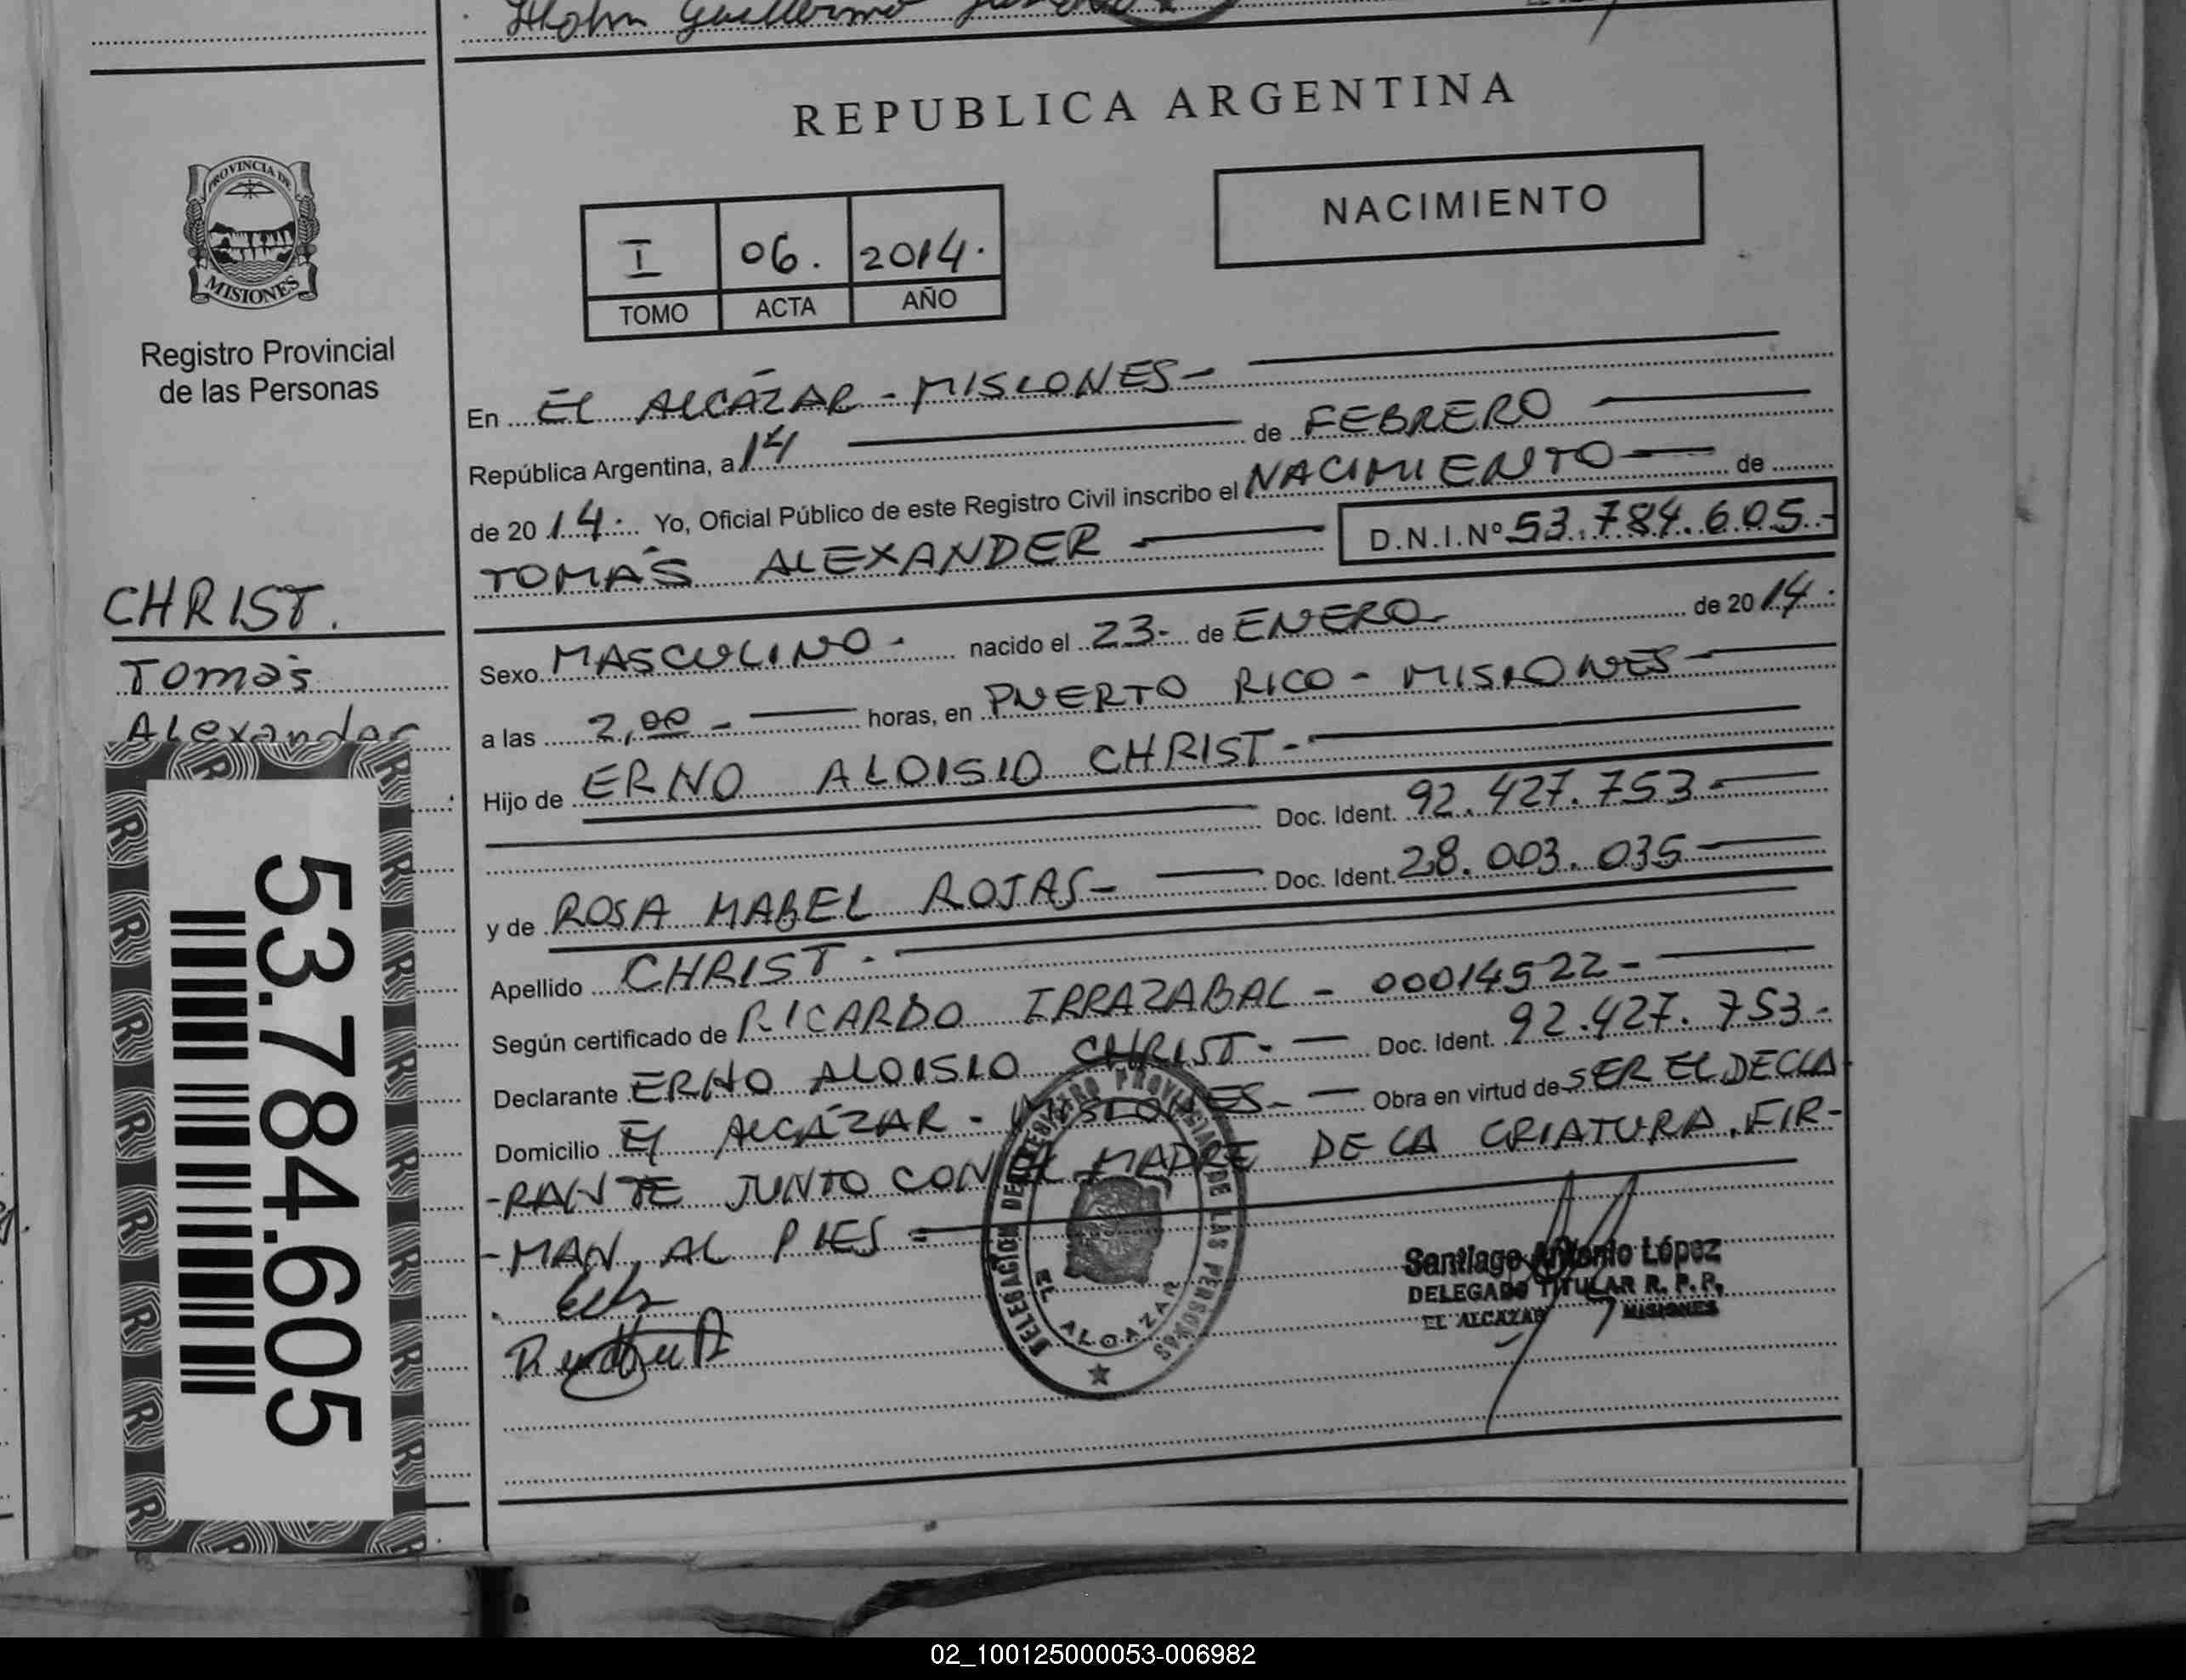 Guillermo
REPUBLICA ARGENTINA
PROVINCIA DE
MISIONES
Registro Provincial
de las Personas
NACIMIENTO
I 06. 2014.
TOMO ACTA AÑO
En EL ALCÁZAR - MISIONES -
República Argentina, a 14 de FEBRERO
de 20 14. Yo, Oficial Público de este Registro Civil inscribo el NACIMIENTO de
TOMÁS ALEXANDER - D.N.I.Nº 53.784.605.-
CHRIST.
Tomás
Alexander
53.784.605
Sexo MASCULINO. nacido el 23- de ENERO de 20 14.
a las 2,00 - horas, en PUERTO RICO - MISIONES -
Hijo de ERNO ALOISIO CHRIST -
Doc. Ident. 92.427.753 -
y de ROSA MABEL ROJAS - Doc. Ident. 28.003.035 -
Apellido CHRIST.
Según certificado de RICARDO IRRAZABAL - 00014522 -
Declarante ERNO ALOISIO CHRIST - Doc. Ident. 92.427.753 -
Domicilio El ALCÁZAR - MISIONES - Obra en virtud de SER EL DECLA
-RANTE JUNTO CON LA MADRE DE LA CRIATURA. FIR-
-MAN, AL PIES =
DELEGACION DEL REGISTRO PROVINCIAL DE LAS PERSONAS
EL ALCAZAR
Santiago Antonio López
DELEGADO TITULAR R. P. P.
EL ALCAZAR MISIONES
02_100125000053-006982